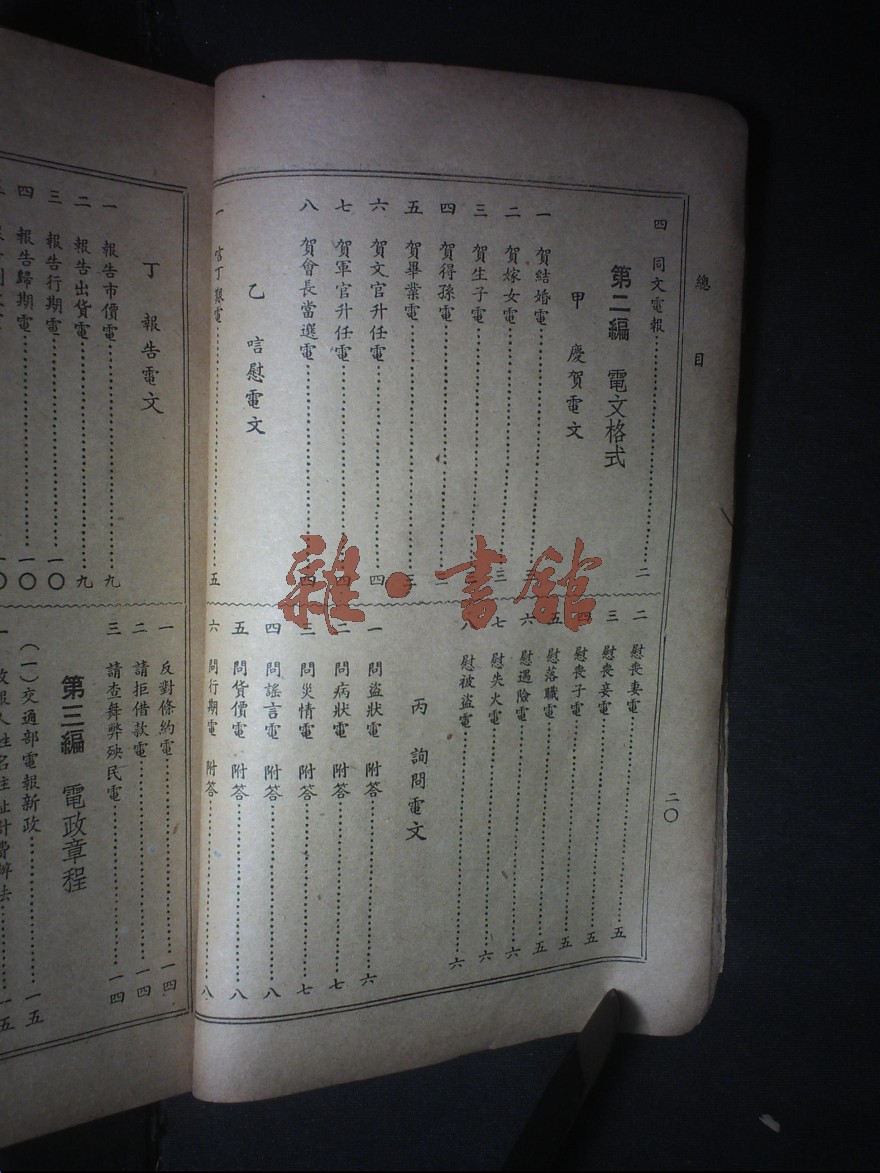 總目
二〇
四 同文電報…二
第二編 電文格式
甲 慶賀電文
一 賀結婚電
二 賀嫁女電…三
三 賀生子電
四 賀得孫電
五 賀畢業電…三
六 賀文官升任電…四
七 賀軍官升任電…四
八 賀會長當選電…四
乙 唁慰電文
一 …五
二 慰喪妻電…五
三 慰喪妾電…五
四 慰喪子電…五
五 慰落職電…五
六 慰遇險電…六
七 慰失火電…六
八 慰被盜電…六
丙 詢問電文
一 問盜狀電 附答…六
二 問病狀電 附答…七
三 問災情電 附答…七
四 問謠言電 附答…八
五 問貨價電 附答…八
六 問行期電 附答…八
丁 報告電文
一 報告市價電…九
二 報告出貨電…九
三 報告行期電…一〇
四 報告歸期電…一〇
一 反對條約電…一四
二 請拒借款電…一四
三 請查舞弊殃民電…一四
第三編 電政章程
(一)交通部電報新政…一五
人姓名住址計費辦法…一五
雜·書舘